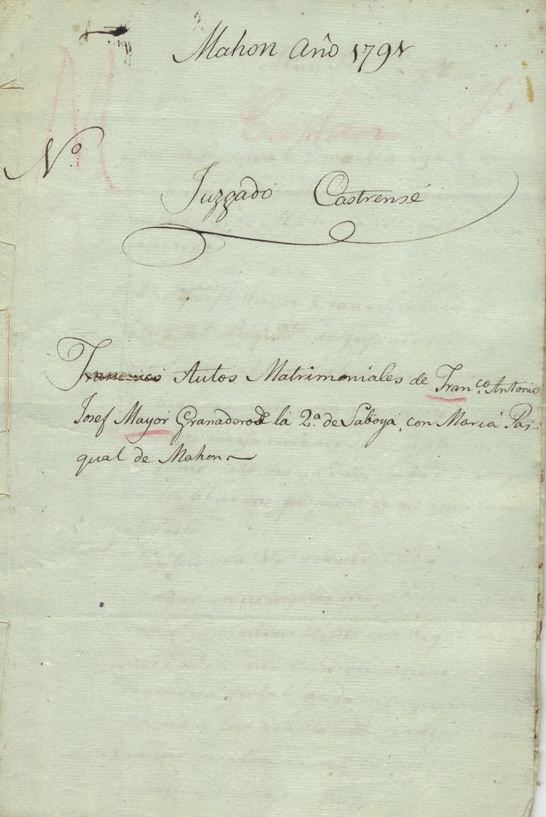 Mahon Año 1791
N.º
Juzgado Castrense
Francisco Autos Matrimoniales de Fran.co Antonio
Josef Mayor Granadero d la 2.ª de Saboya, con Maria Pas-
qual de Mahon